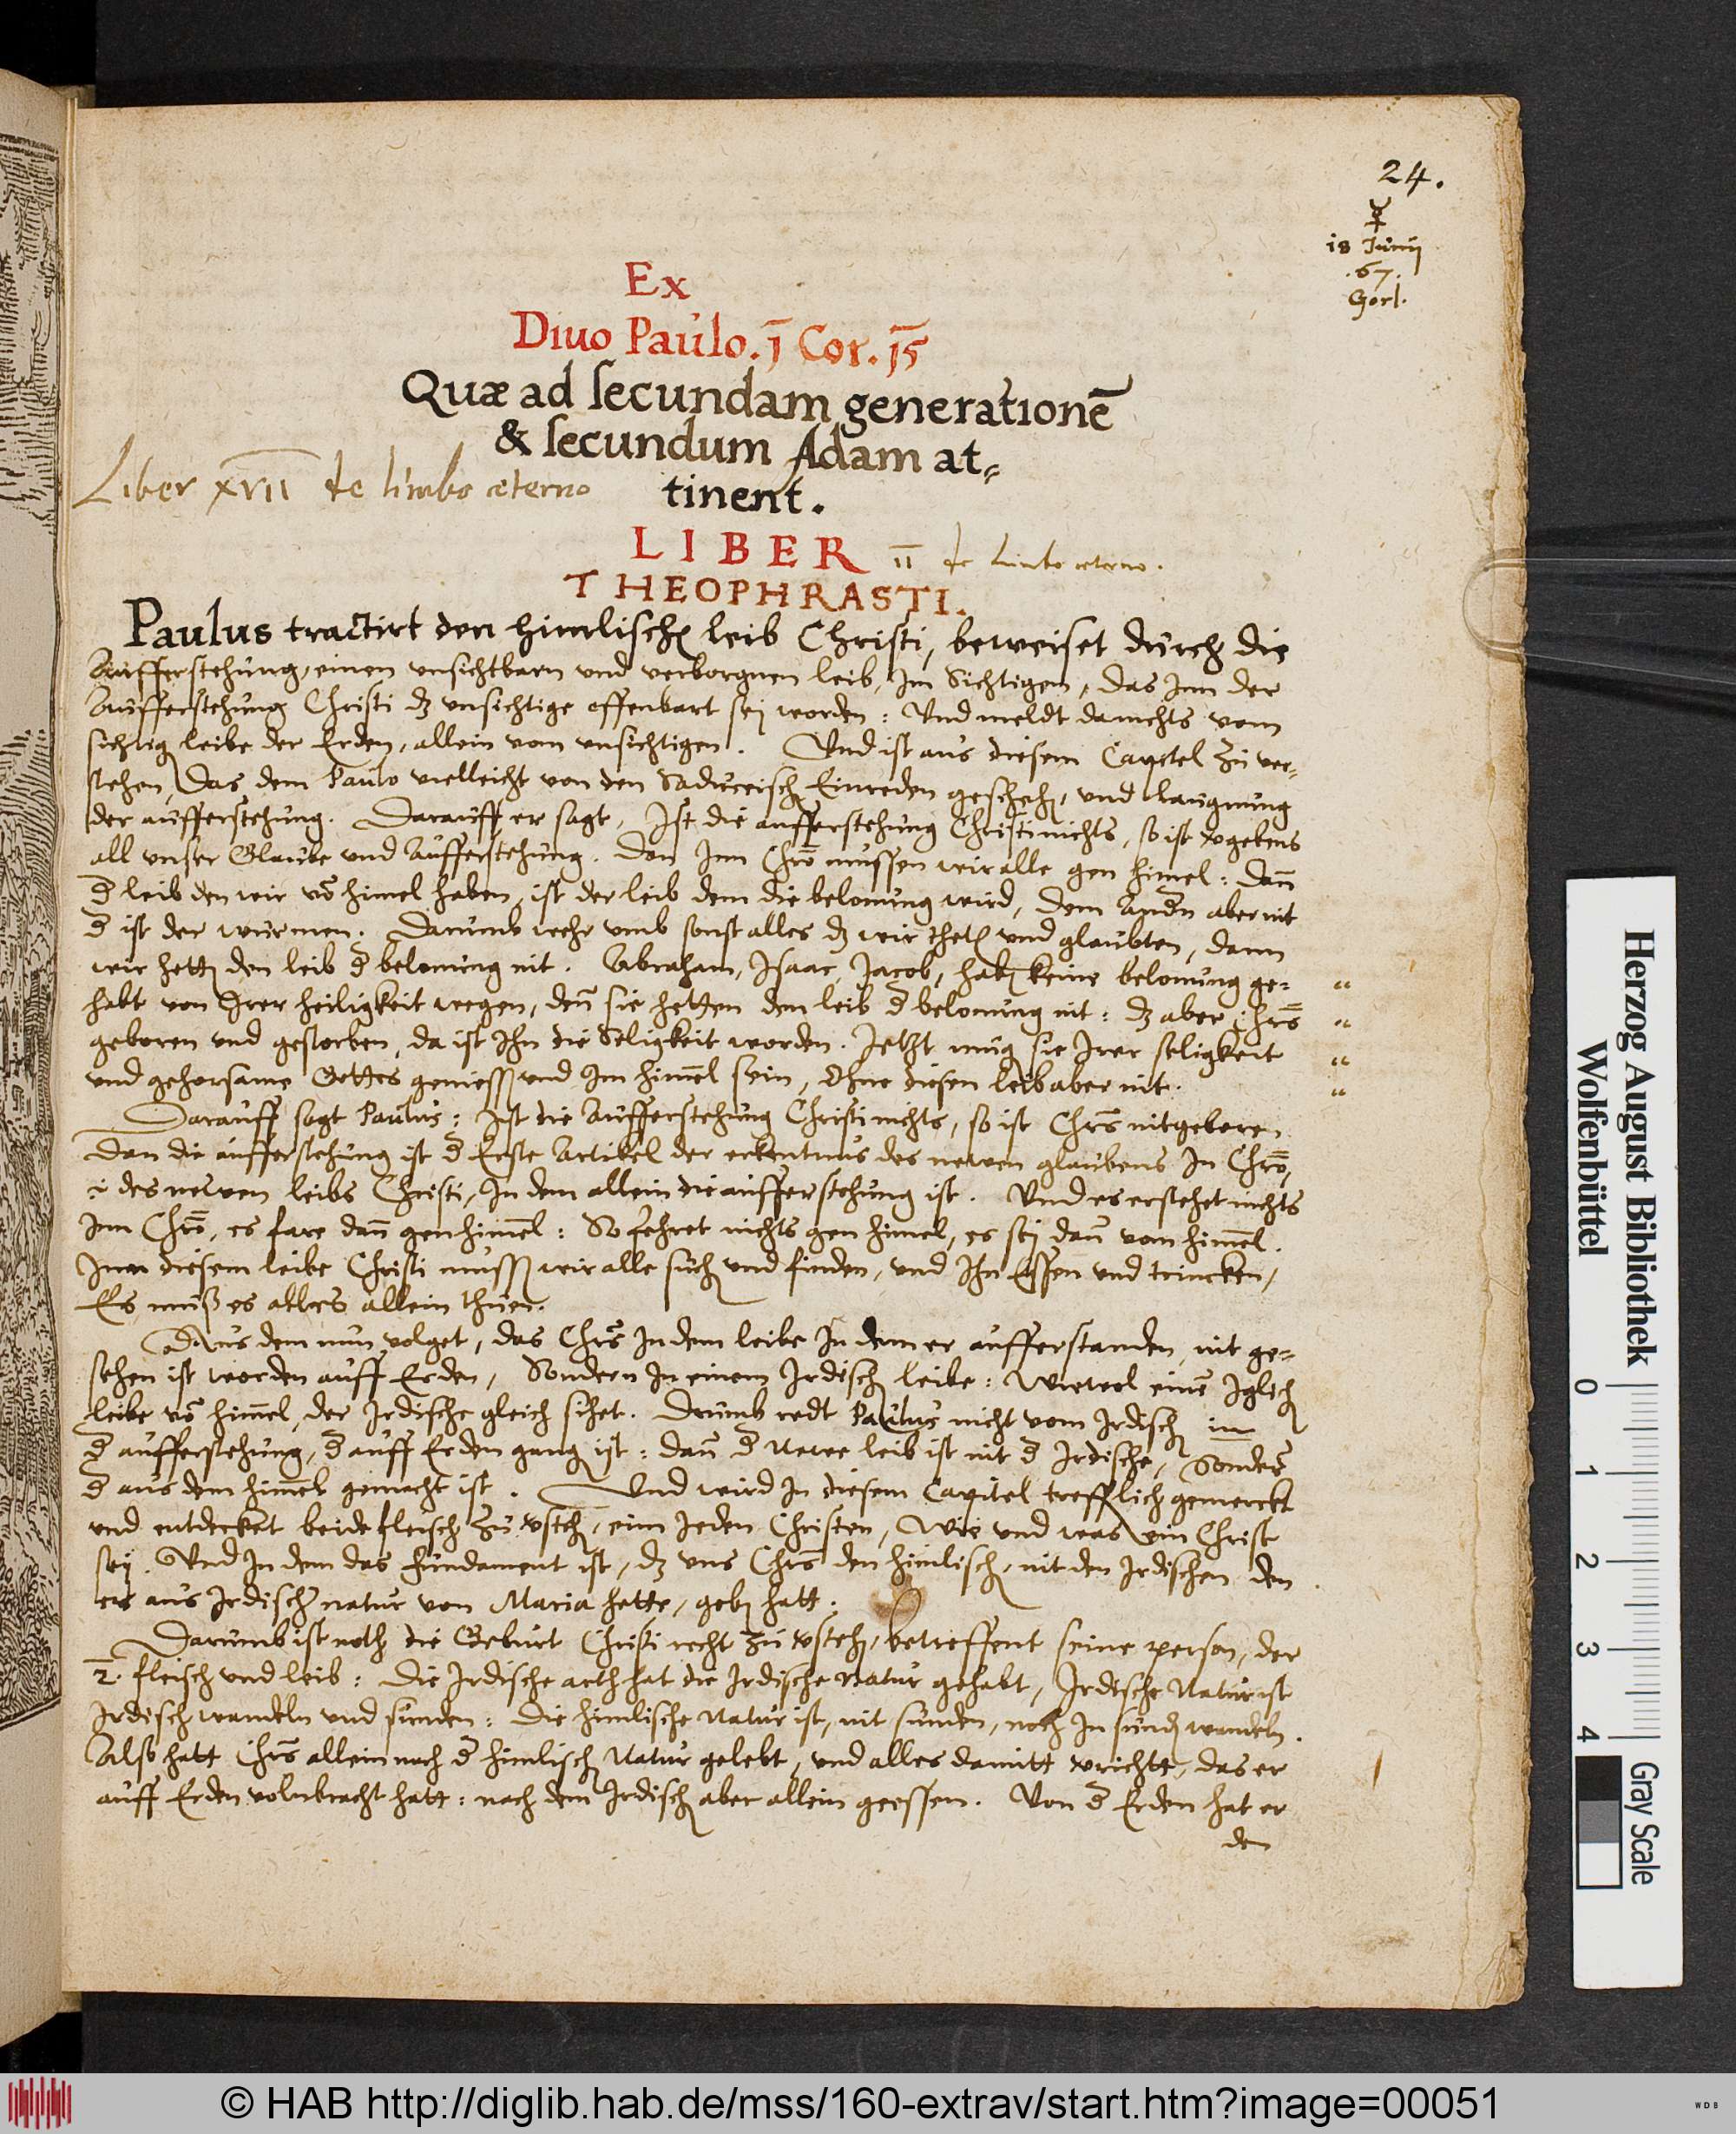 24.
☿
18 Junij
.67.
Gorl.
Ex
Diuo Paulo. j̄ Cor. j̄5
Quæ ad secundam generationē
& secundum Adam at=
tinent.
Liber xvii de limbo æterno
LIBER ii de Limbo æterno.
THEOPHRASTI.
Paulus tractirt den himlischē leib Christi, beweiset durch die
Aufferstehung, einen unsichtbarn und verborgnen leib, Im Sichtigen, das Inn der
Aufferstehung Christi dz unsichtige offenbart sej worden: Und meldt da nichts vom
sichtig leibe der Erden, allein vom unsichtigen. Und ist aus diesem Capitel zu ver=
stehen, Das dem Paulo vielleicht von den Saduceisch Einreden gescheh, und laugnung
der aufferstehung. Darauff er sagt, Ist die aufferstehung Christi nichts, so ist vgebens
all unser Glaube und Aufferstehung. Den Inn Chrō mussen wir alle gen himel: Dann
d leib den wir vō himel haben, ist der leib dem die belonung wird, Dem Andn aber nit
d ist der wurmen. Darumb wehr umb sonst alles dz wir thetē und glaubten, dann
wir hettē den leib d belonung nit. Abraham, Isaac, Jacob, habē keine belonung ge= “
habt von Irer heiligkeit wegen, deñ sie hetten den leib d belonung nit: dz aber Chrs̄ “
geboren und gestorben, da ist Ihn die Seligkeit worden. Jetzt mug sie Irer seligkeit “
und gehorsame Gottes geniessē und Im himel sein, Ohne diesen leib aber nit. “
Darauff sagt Paulus: Ist die Aufferstehung Christi nichts, so ist Chrs̄ nit geboren
Dan die aufferstehung ist d Erste Artikel der erkentnus des newen glaubens In Chrō,
i des newen leibs Christi, In dem allein die aufferstehung ist. Und es erstehet nichts
Inn Chrō, es fare dañ gen himel: So fehret nichts gen himel, es sej dañ vom himel.
Inn diesem leibe Christi mussē wir alle such und finden, und Ihn Essen und trincken,
Es muß es alles allein thuen.
Aus dem nun volget, das Chrs̄ In dem leibe In dem er aufferstanden, nit ge=
sehen ist worden auff Erden, Sondern In einem Irdisch leibe: Wiewol einē Iglich
leibe vō himel, der Irdische gleich sihet. Drumb redt Paulus nicht vom Irdisch in
d aufferstehung, d auff Erden gang ist: dañ d Newe leib ist nit d Irdische, Sonder
d aus dem himel gemacht ist. Und wird In diesem Capitel trefflich gemerckt
und entdecket beide fleisch zu vsteh, eim Jeden Christen, Wie und was ein Christ
sej. Und In dem das fundament ist, dz uns Chrs̄ den himlisch, nit den Irdischen den
er aus Irdischer natur von Maria hette, gebē hatt.
Darumb ist noth die Geburt Christi recht zu vsteh, betreffent seine person, der
2. fleisch und leib: Die Irdische arth hat die Irdische Natur gehabt, Irdische Natur ist
Irdisch wandeln und sunden: Die himlische Natur ist, nit sunden, noch In sund wandeln.
Also hatt Chrs̄ allein nach d himlisch Natur gelebt, und alles damitt vrichtt, das er
auff Erden volnbracht hatt: nach dem Irdisch aber allein geessen. Von d Erden hat er
den
Herzog August Bibliothek
Wolfenbüttel
0 1 2 3 4
Gray Scale
© HAB http://diglib.hab.de/mss/160-extrav/start.htm?image=00051
WDB